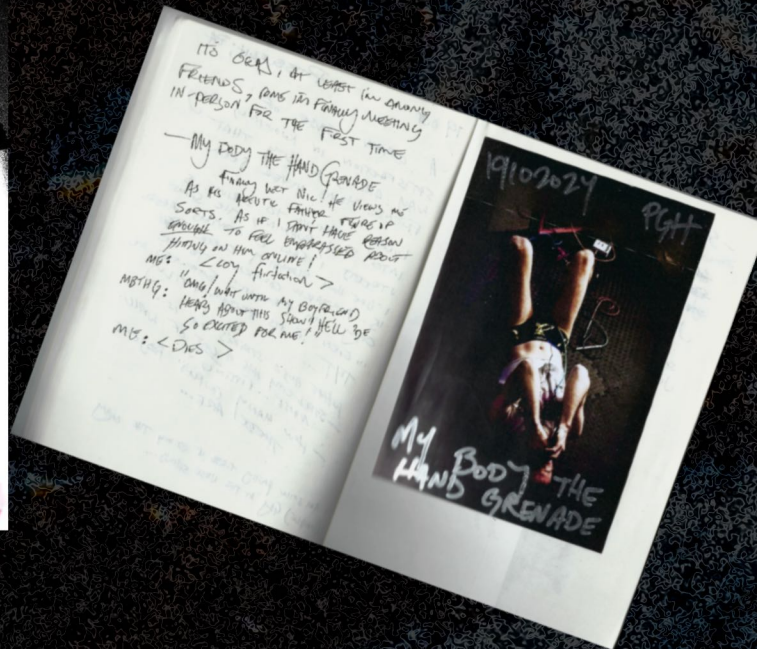 ITS OKAY, AT LEAST I'm AMONG
FRIENDS, SOME I'M FINALLY MEETING
IN-PERSON FOR THE FIRST TIME
— MY BODY THE HAND GRENADE
FINALLY MET NIC! HE VIEWS ME
AS HIS FATHER FIGURE OF
SORTS. AS IF I DIDN'T HAVE REASON
ENOUGH TO FEEL EMBARRASSED ABOUT
HITTING ON HIM ONLINE!
ME: <COY flirtation>
MBTHG: "OMG! WAIT UNTIL MY BOYFRIEND
HEARS ABOUT THIS SHOW! HE'LL BE
SO EXCITED FOR ME!"
ME: <DIES>
19102024 PGH
MY BODY THE
HAND GRENADE